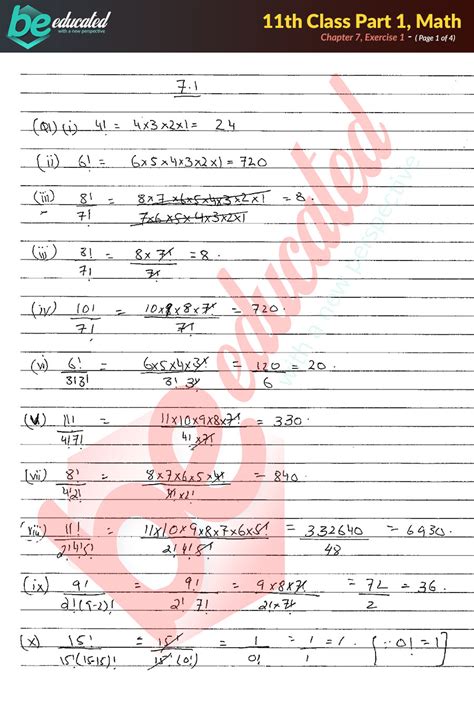 be educated
with a new perspective
11th Class Part 1, Math
Chapter 7, Exercise 1 - ( Page 1 of 4)
7.1
(Q1) (i) 4! = 4x3x2x1 = 24
(ii) 6! = 6x5x4x3x2x1 = 720
(iii) 8!/7! = 8x7x6x5x4x3x2x1 / 7x6x5x4x3x2x1 = 8.
(iii) 8!/7! = 8x7! / 7! = 8.
(iv) 10!/7! = 10x9x8x7! / 7! = 720.
(vi) 6!/3!3! = 6x5x4x3! / 3! 3! = 120/6 = 20.
(v) 11!/4!7! = 11x10x9x8x7! / 4! x7! = 330.
(vii) 8!/4!2! = 8x7x6x5x4! / 4!x2! = 840
(viii) 11!/2!4!5! = 11x10x9x8x7x6x5! / 2!4!5! = 332640/48 = 6930.
(ix) 9!/2!(9-2)! = 9!/2! 7! = 9x8x7!/2!x7! = 72/2 = 36.
(x) 15!/15!(15-15)! = 15!/15!(0!) = 1/0! = 1/1 = 1. [∵ 0! = 1]
be educated
with a new perspective